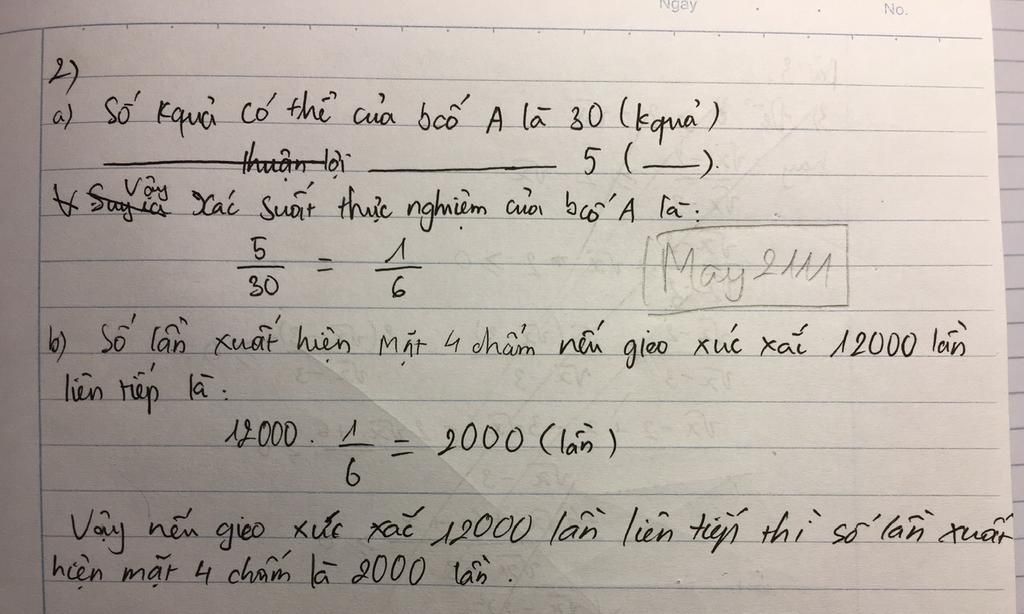 Ngày No.
2)
a) Số kquả có thể của bcố A là 30 (kquả)
thuận lợi 5 ( ).
Vậy xác suất thực nghiệm của bcố A là:
5/30 = 1/6
May 2111
b) Số lần xuất hiện mặt 4 chấm nếu gieo xúc xắc 12000 lần
liên tiếp là:
12000 . 1/6 = 2000 (lần)
Vậy nếu gieo xúc xắc 12000 lần liên tiếp thì số lần xuất
hiện mặt 4 chấm là 2000 lần.